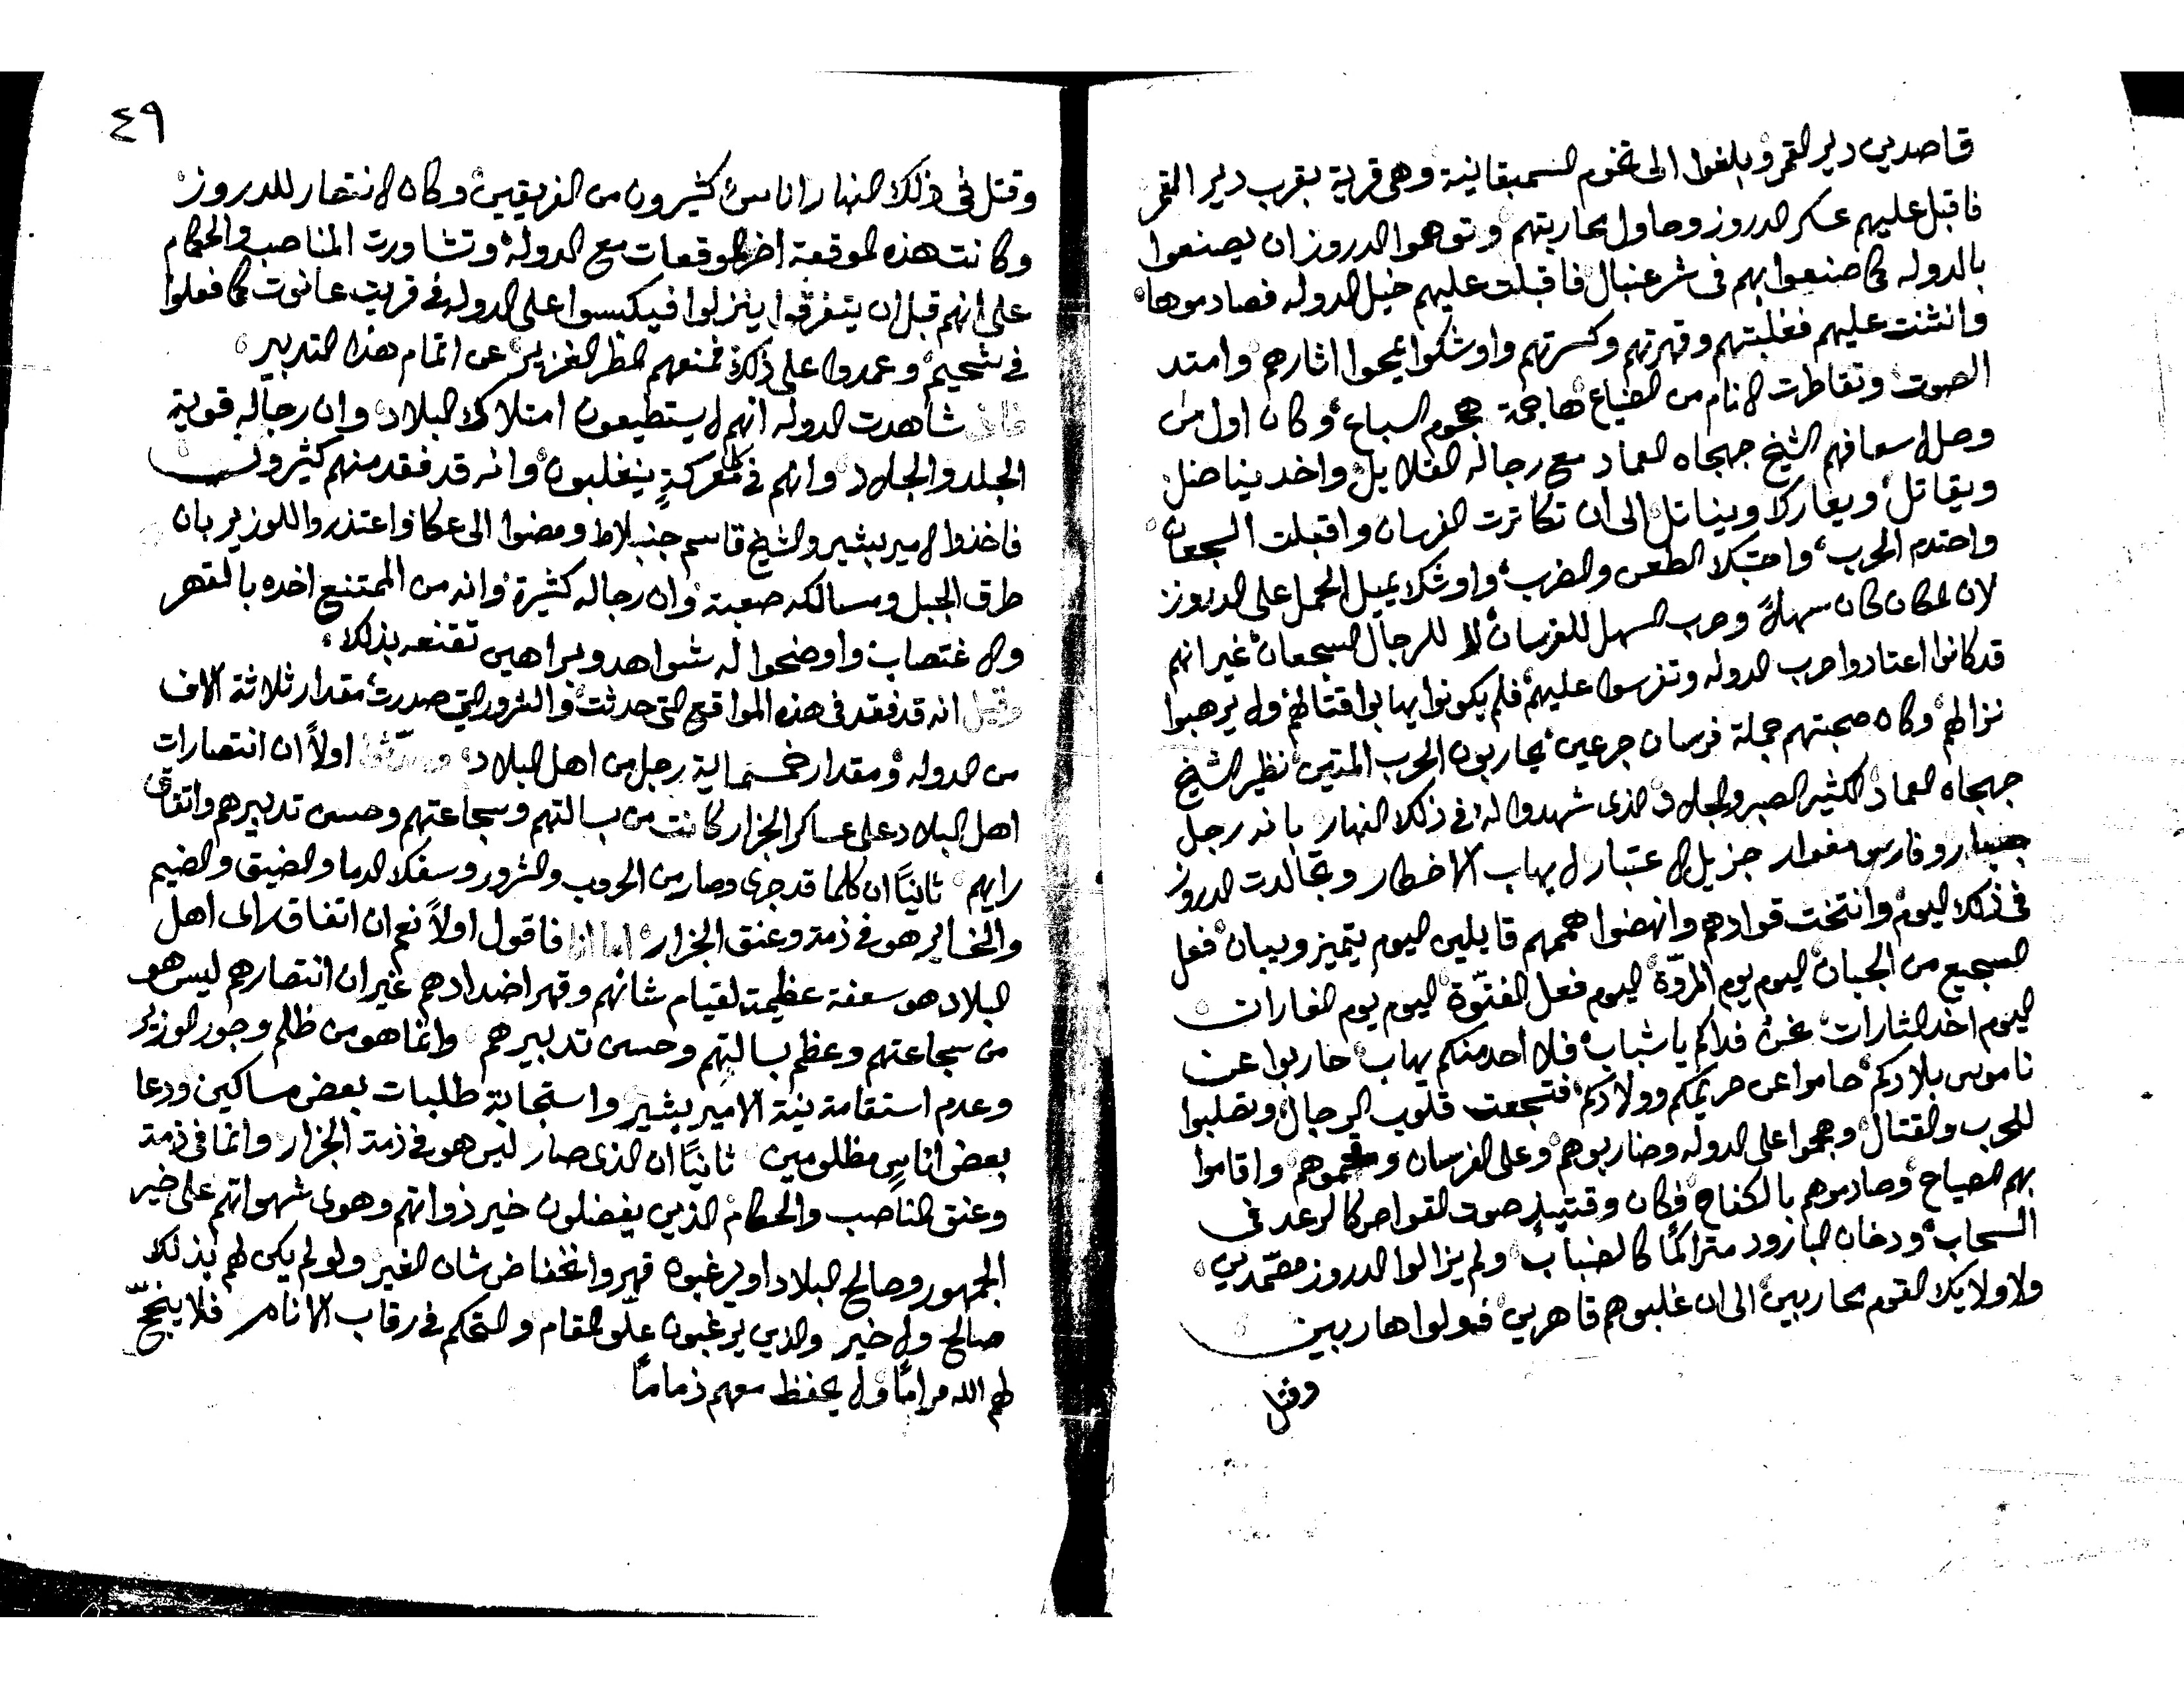 قاصدين دير القمر وبلغوا الى تخوم السمبقانية وهى قرية بقرب دير القمر
فاقبل عليهم عسكر الدروز وحاول محاربتهم وتوهموا الدروز ان يصنعوا
بالدوله كما صنعوا بهم فى شرعنبال فاقبلت عليهم خيل الدوله فصادموها
وانثنت عليهم فغلبتهم وقهرتهم وكسرتهم واوشكوا يمحوا اثارهم وامتد
الصوت وتقاطرت الانام من الضياع هاجمة هجوم السباع وكان اول من
وصل لاسعافهم الشيخ جهجاه العماد مع رجاله القلايل واخد يناضل
ويقاتل ويعارك ويناتل الى ان تكاترت الفرسان واقبلت السجعان
واحتدم الحرب واحتبك الطعن والضرب واوشك يميل الحمل على الدروز
لان المكان كان سهلاً وحرب السهل للفرسان لا للرجال السجعان غير انهم
قد كانوا اعتادوا حرب الدوله وتفرسوا عليهم فلم يكونوا يهابوا قتالهم ولا يرهبوا
نزالهم وكان صحبتهم جملة فرسان جرعين يحاربون الحرب المتين نظير الشيخ
جهجاه العماد الكثير الصبر والجلاد الذى شهدوا له فى ذلك النهار بانه رجل
جبار وفارس مغوار جزيل الاعتبار لا يهاب الاخطار وتجالدت الدروز
فى ذلك اليوم وانتخت قوادهم وانهضوا هممهم قايلين اليوم يتميز ويبان فعل
السجيع من الجبان اليوم يوم المروّة اليوم فعل الفتوّة اليوم يوم الغارات
اليوم اخد الثارات نحن فداكم يا شباب فلا احد منكم يهاب حاربوا عن
ناموس بلادكم حاموا عن حريمكم وولادكم فتسجعت قلوب الرجال وتصلبوا
للحرب والقتال وهجموا على الدوله وضاربوهم وعلى الفرسان وهجموهم واقاموا
بهم الصياح وصادموهم بالكفاح فكان وقتيذ صوت القواص كالرعد فى
السحاب ودخان البارود متراكمًا كالضباب ولم يزالوا الدروز معتمدين
ولاولايك القوم محاربين الى ان غلبوهم قاهرين فولوا هاربين
وقتل
٤٩
وقتل فى ذلك النهار اناس كثيرون من الفريقين وكان الانتصار للدروز
وكانت هذه الموقعة اخر الموقعات مع الدوله وتشاورت المناصب والحكام
على انهم قبل ان يتفرقوا ينزلوا فيكبسوا على الدوله فى قريت عانوت كما فعلوا
فى شحيم وعمدوا على ذلك فمنعهم المطر الغزير عن اتمام هذا التدبير
شاهدت الدوله انهم لا يستطيعون امتلاك البلاد وان رجاله قوية
الجلد والجلاد وانهم فى كل معركةٍ ينغلبون وانه قد فقد منهم كثيرون
فاخذوا الامير بشير والشيخ قاسم جنبلاط ومضوا الى عكا واعتذروا للوزير بان
طرق الجبل ومسالكه صعبة وان رجاله كثيرة وانه من الممتنع اخده بالقهر
والاغتصاب واوضحوا له شواهد وبراهين تقنعه بذلك
وقيل انه قد فقد فى هذه المواقع التى حدثت والشرور التى صدرت مقدار ثلاثة الاف
من الدوله ومقدار خمسماية رجل من اهل البلاد اولاً ان انتصارات
اهل البلاد على عساكر الجزار كانت من بسالتهم وسجاعتهم وحسن تدبيرهم واتفاق
رايهم ثانيًا ان كلما قد جرى وصار من الحروب والشرور وسفك الدما والضيق والضيم
والخساير هو فى ذمة وعنق الجزار اما انا فاقول اولاً نعم ان اتفاق راى اهل
البلاد هو سعفة عظيمة لقيام شانهم وقهر اضدادهم غير ان انتصارهم ليس هو
من سجاعتهم وعظم بسالتهم وحسن تدبيرهم وانما هو من ظلم وجور الوزير
وعدم استقامة نية الامير بشير واستجابة طلبات بعض مساكين ودعا
بعض اناسٍ مظلومين ثانيًا ان الذى صار ليس هو فى ذمة الجزار وانما فى ذمة
وعنق المناصب والحكام الذين يفضلون خير ذواتهم وهوى شهواتهم على خير
الجمهور وصالح البلاد او يرغبون قهر وانخفاض شان الغير ولو لم يكن لهم بذلك
صالح ولا خير والذين يرغبون علو المقام والتحكم فى رقاب الانام فلا ينجّح
لهم الله مرامًا ولا يحفظ معهم ذمامًا